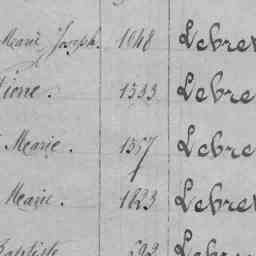 Marie Joseph. 1048 Lebre
tiene. 1533 Lebre
Marie. 1357 Lebre
Marie. 1823 Lebre
Baptiste 592 Lebre